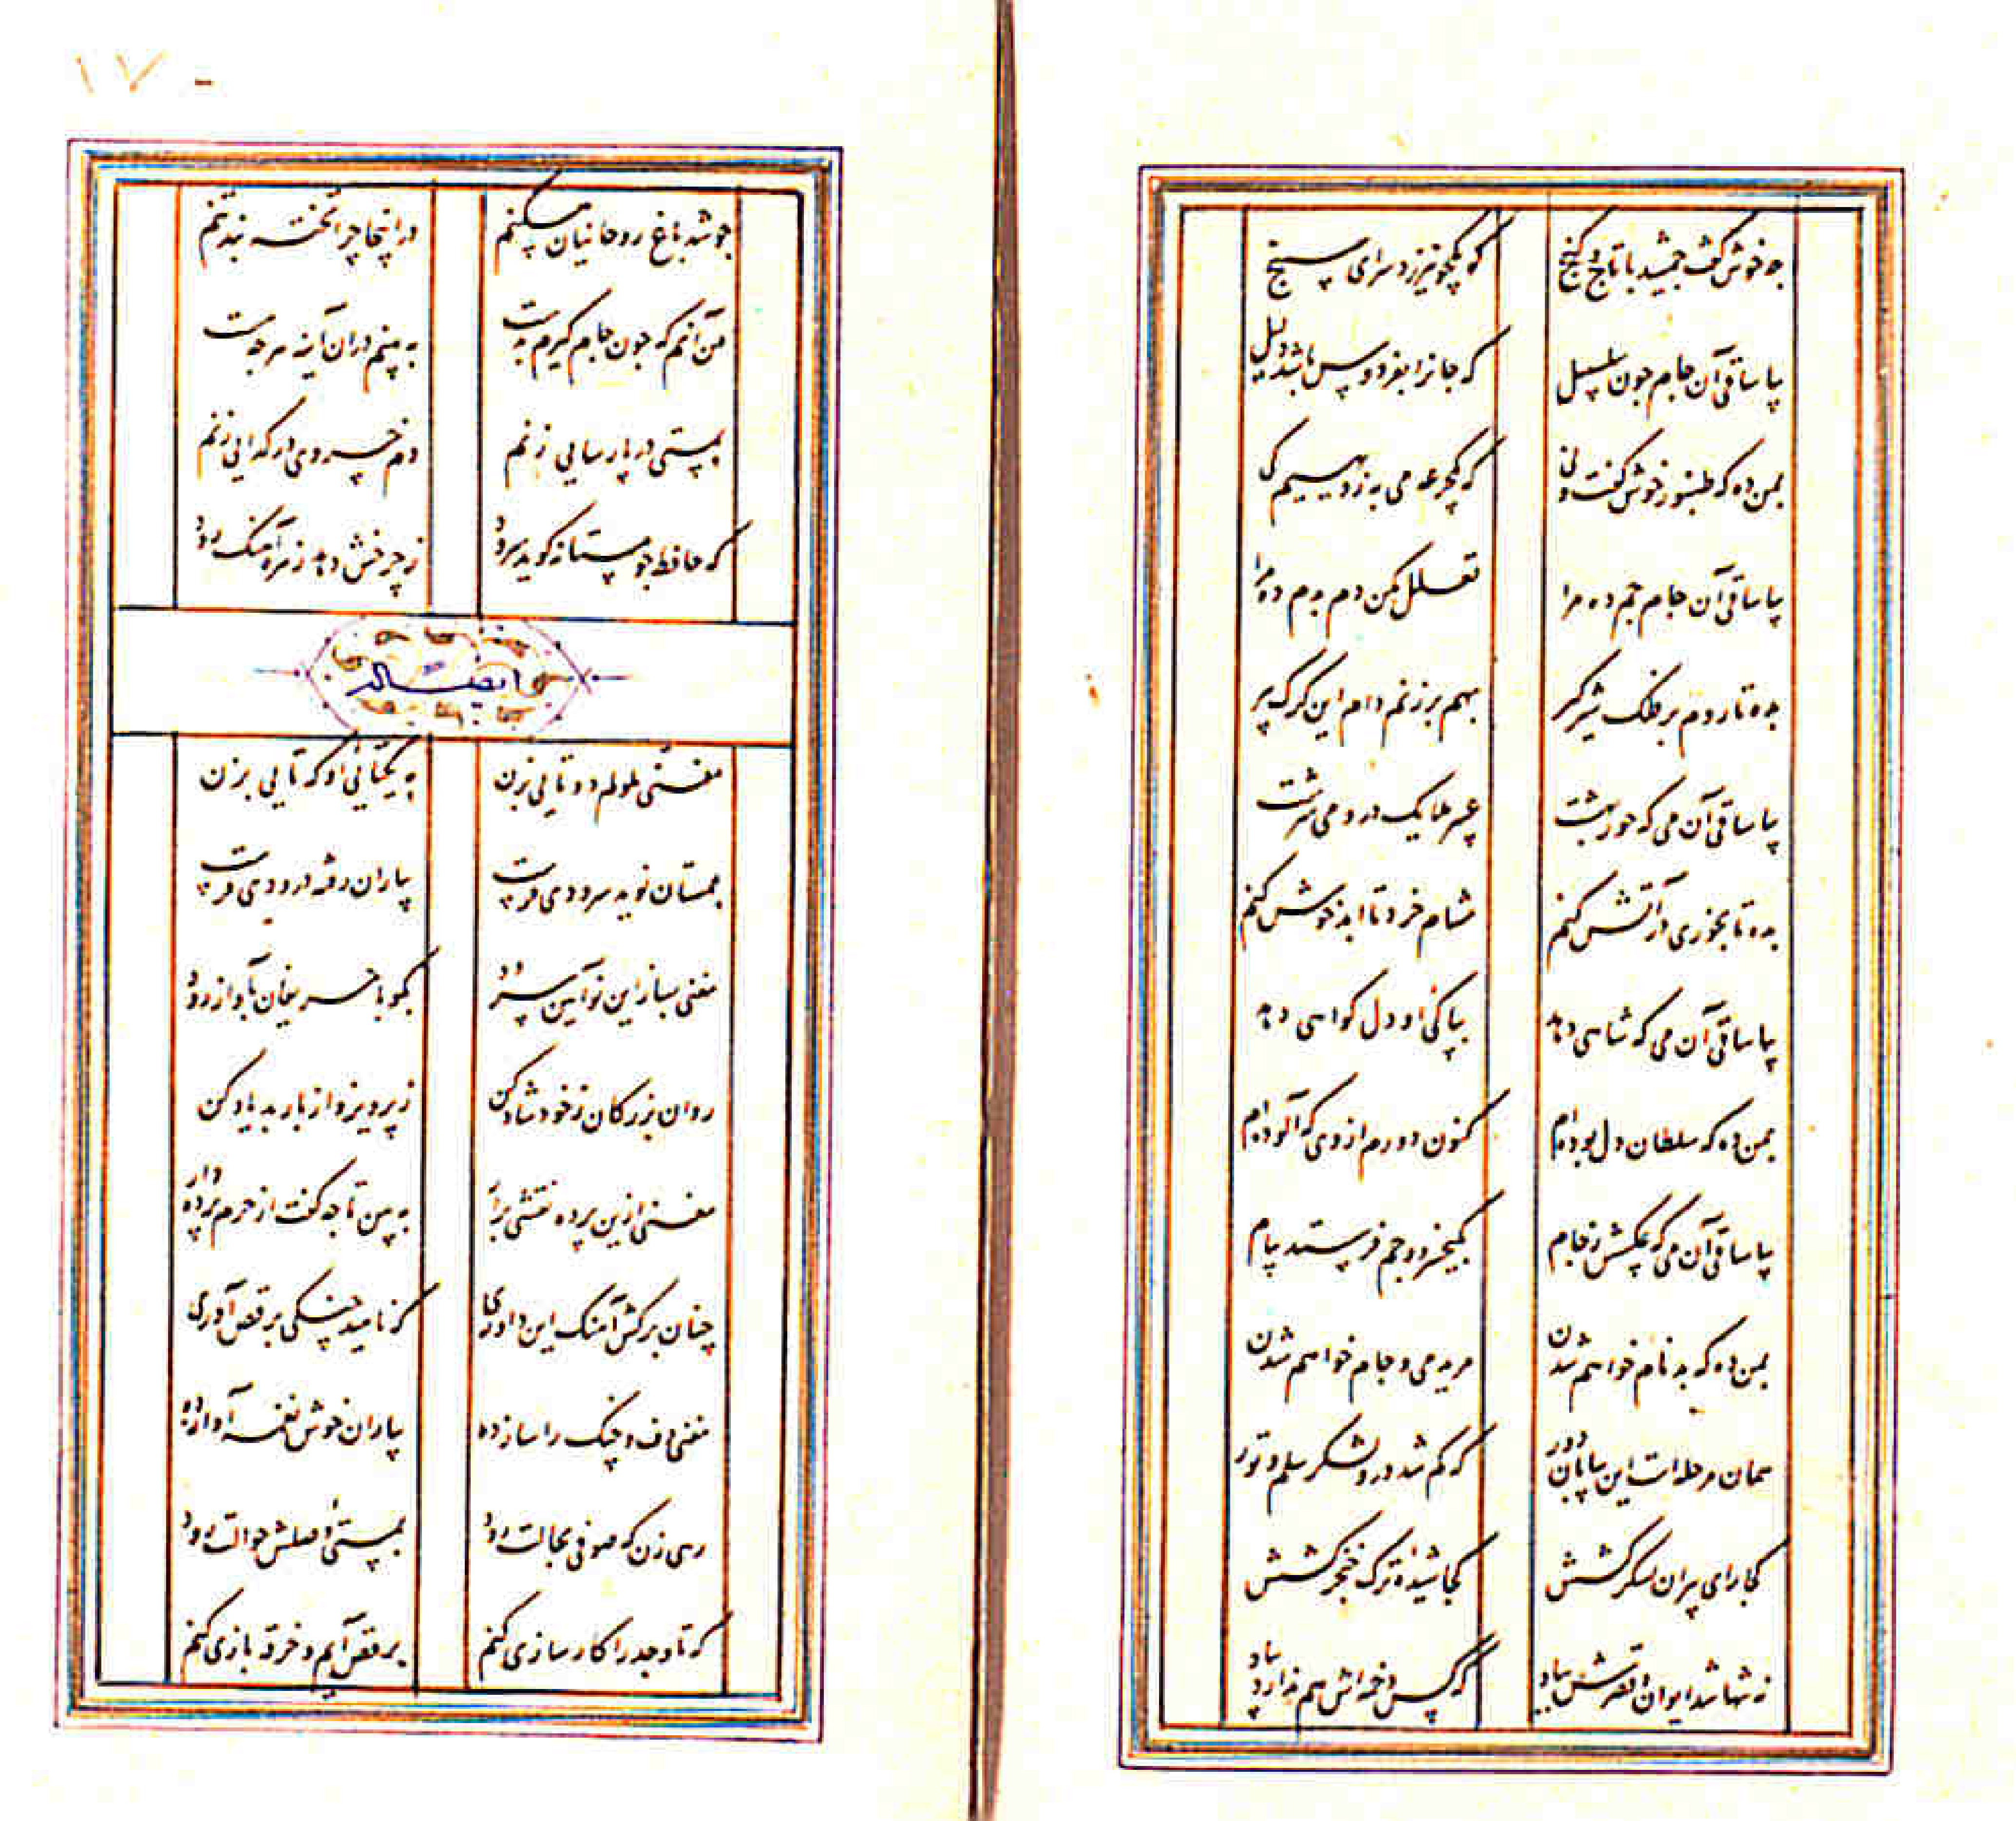 چه خوش گفت جمشید با تاج و گنج که یکجو نیرزد سرای سپنج
بیا ساقی آن جام چون سلسبیل که جانرا بفردوس باشد دلیل
بمن ده که طنبور خوش گفت و نی که یکجرعه می به ز دیهیم کی
بیا ساقی آن جام جم ده مرا تعلل مکن دم بدم ده مرا
بده تا روم بر فلک شیر گیر بهم بر زنم دام این گرگ پیر
بیا ساقی آن می که حور بهشت عبیر ملایک درو می سرشت
بده تا بخوری در آتش کنم مشام خرد تا ابد خوش کنم
بیا ساقی آن می که شاهی دهد بپاکی او دل گواهی دهد
بمن ده که سلطان دل بوده‌ام کنون دورم از وی که آلوده‌ام
بیا ساقی آن می که عکسش ز جام بکیخسرو و جم فرستد پیام
بمن ده که بدنام خواهم شدن مرید می و جام خواهم شدن
همان مرحله‌ات این بیابان دور که گم شد درو لشکر سلم و تور
کجا رای پیران لشکر کشش کجا شیده ترک خنجر کشش
نه تنها شد ایوان و قصرش بباد که کس دخمه‌اش هم ندارد بیاد
۱۷۰
چو شد باغ روحانیان مسکنم در اینجا چرا تخته بند تنم
من آنم که چون جام گیرم بدست ببینم دران آینه هرچه هست
بمستی در پارسایی زنم دم خسروی در گدایی زنم
که حافظ چو مستانه گوید سرود ز چرخش دهد زهره آهنک رود
ایضاله
مغنی ملولم دوتایی بزن به یکتایی او که تایی بزن
بمستان نوید سرودی فرست بیاران رفته درودی فرست
مغنی بساز این نوآیین سرود بگو با حریفان بآواز رود
روان بزرگان ز خود شاد کن ز پرویز و از باربد یاد کن
مغنی ازین پرده نقشی برآر ببین تا چه گفت از حرم پرده دار
چنان برکش آهنک این داوری که ناهید چنگی برقص آوری
مغنی دف و چنگ را ساز ده بیاران خوش نغمه آواز ده
رهی زن که صوفی بحالت رود بمستی وصلش حوالت رود
که تا وجد را کارسازی کنم برقص آیم و خرقه بازی کنم